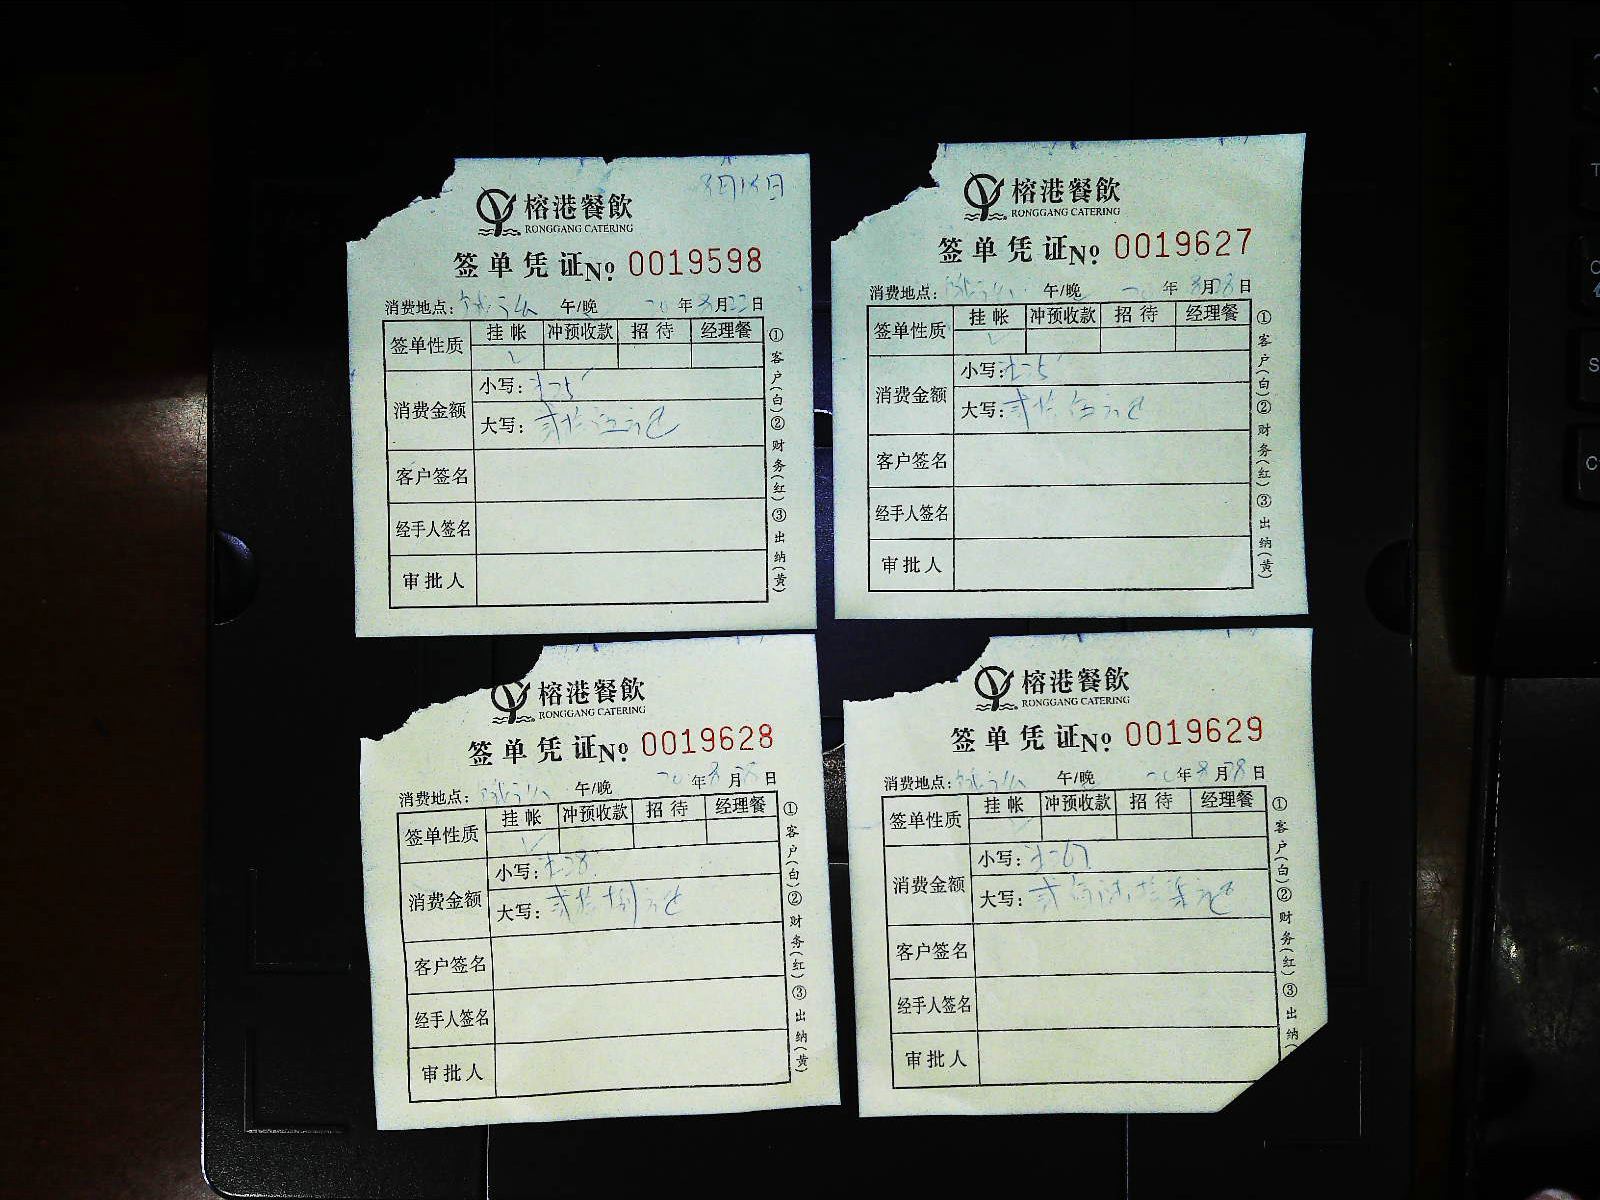 8月18日
榕港餐飲
RONGGANG CATERING
签单凭证No. 0019598
消费地点: 午/晚 20年8月23日
签单性质 挂帐 冲预收款 招待 经理餐
消费金额 小写: ¥25
大写: 贰拾伍元正
客户签名
经手人签名
审批人
①客户(白)②财务(红)③出纳(黄)
榕港餐飲
RONGGANG CATERING
签单凭证No. 0019627
消费地点: 午/晚 20年8月28日
签单性质 挂帐 冲预收款 招待 经理餐
消费金额 小写: ¥25
大写: 贰拾伍元正
客户签名
经手人签名
审批人
①客户(白)②财务(红)③出纳(黄)
榕港餐飲
RONGGANG CATERING
签单凭证No. 0019628
消费地点: 午/晚 20年8月28日
签单性质 挂帐 冲预收款 招待 经理餐
消费金额 小写: ¥28
大写: 贰拾捌元正
客户签名
经手人签名
审批人
①客户(白)②财务(红)③出纳(黄)
榕港餐飲
RONGGANG CATERING
签单凭证No. 0019629
消费地点: 午/晚 20年8月28日
签单性质 挂帐 冲预收款 招待 经理餐
消费金额 小写: ¥267
大写: 贰佰陆拾柒元正
客户签名
经手人签名
审批人
①客户(白)②财务(红)③出纳(